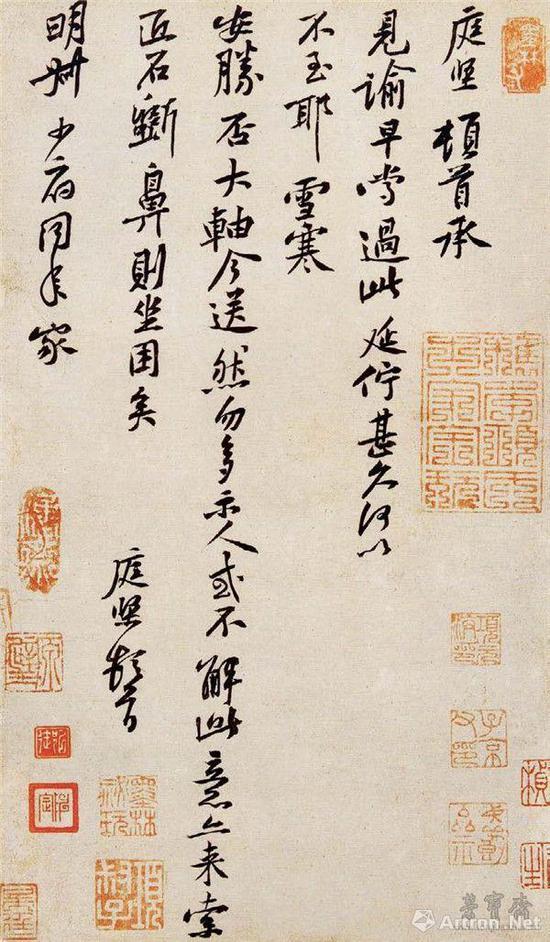 庭堅頓首承
見諭早嘗過此延佇甚久何以
不至耶雪寒
安勝否大軸今送然勿多示人或不解此意亦來索
匠石斵鼻則坐困矣
庭堅頓首
明州少府同年家
Artron.Net